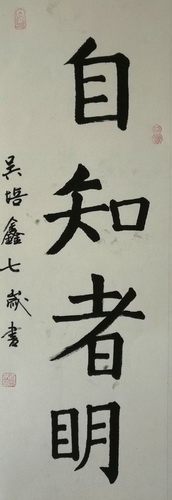 自知者明
吴培鑫七岁書